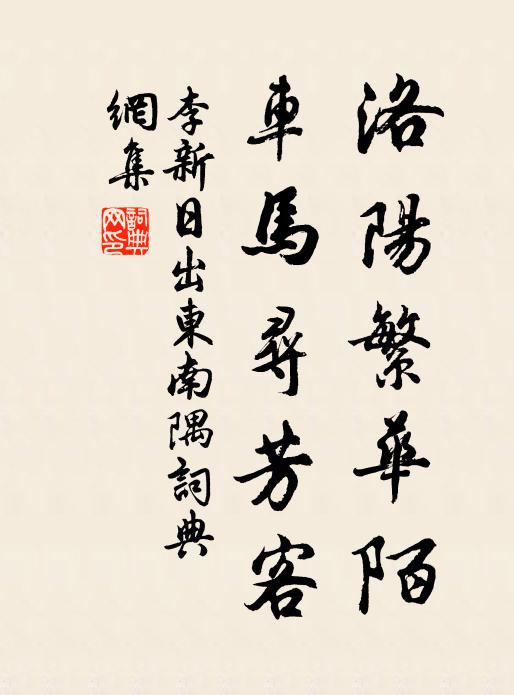 洛陽繁華陌
車馬尋芳客
李新日出東南隅詞典
網集
詞典網印